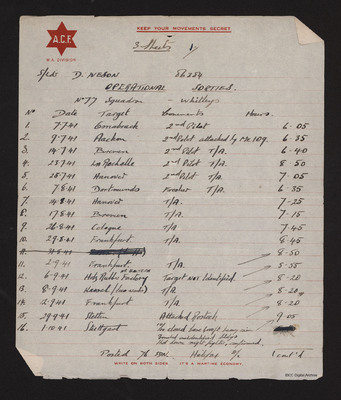 KEEP YOUR MOVEMENTS SECRET
A.C.F.
N.Z. DIVISION
3 Sheets 1/
S/Ldr D. NELSON 86354
OPERATIONAL SORTIES.
No 77 Squadron - Whitleys
No Date Target Comments Hours.
1. 7.7.41 Osnabruck 2nd Pilot 6-05
2. 9.7.41 Aachen 2nd Pilot attacked by Me.109. 6-35
3. 14.7.41 Bremen 2nd Pilot T/A. 6-40
4. 23.7.41 La Rochelle 2nd Pilot T/A. 8-50
5. 25.7.41 Hanover 2nd Pilot T/A. 7-05
6. 7.8.41 Dortmund T/A. 6-35
7. 14.8.41 Hanover T/A. 7-25
8. 17.8.41 Bremen T/A. 7-15
9. 26.8.41 Cologne T/A 7-45
10. 29.8.41 Frankfurt T/A. 8-45
8-50
11. 2.9.41 Frankfurt T/A. 8-55
12. 6.9.41 Rubber Factory Target Not Identified. 8-20
13. 8.9.41 T/A. 8-20
14. 12.9.41 Frankfurt T/A. 8-20
15. 29.9.41 Stettin Attacked Rostock 9.05
16. 1.10.41 Stuttgart
Posted 76 Sqn. Halifax (cont'd
WRITE ON BOTH SIDES IT'S A WARTIME ECONOMY.
IBCC Digital Archive